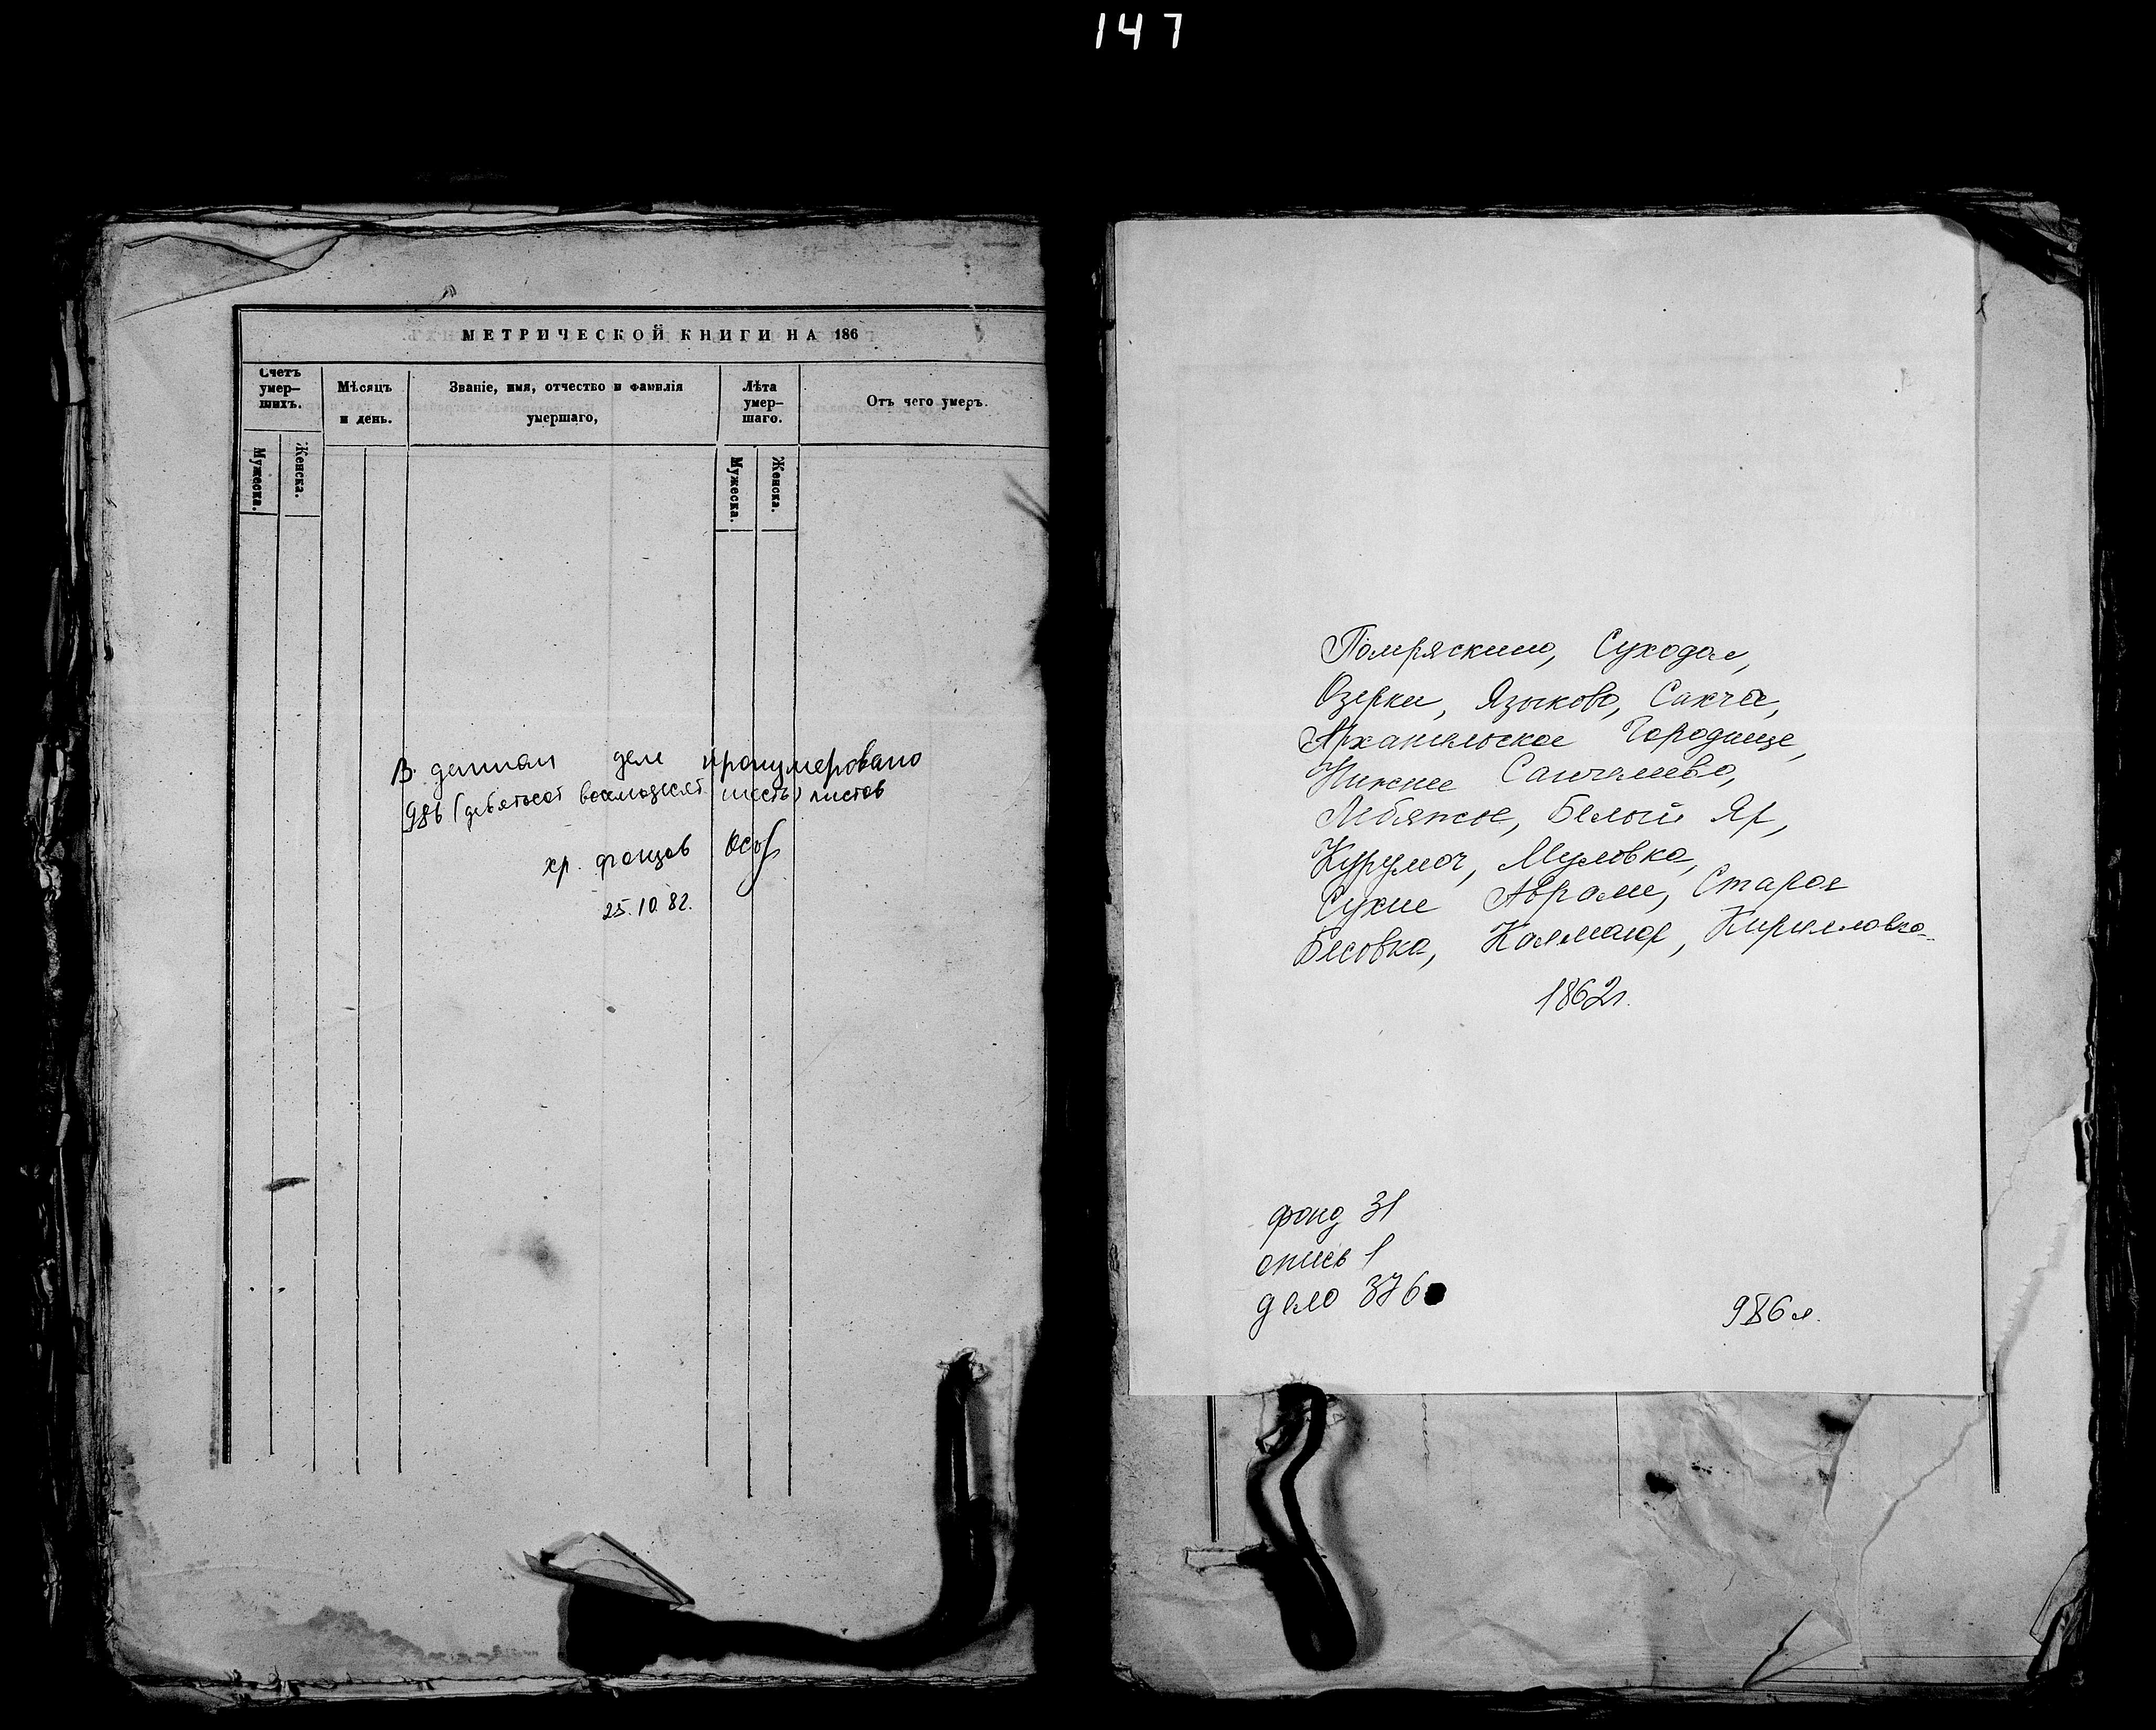 147
МЕТРИЧЕСКОЙ КНИГИ НА 186
Счетъ умер–шихъ.
Мѣсяцъ и день.
Званіе, имя, отчество и фамилія умершаго,
Лѣта умер–шаго.
Отъ чего умеръ.
Мужеска.
Женска.
Мужеска.
Женска.
В данном деле пронумеровано
986 (девятьсот восемьдесят шесть) листов
хр. фондов
25.10.82.
Помряскино, Суходол,
Озерки, Языково, Сакча,
Архангельское Городище,
Нижнее Санчелеево,
Лебяжье, Белый Яр,
Курумоч, Мулловка,
Сухие Аврали, Старая
Бесовка, Калмаюр, Кирилловка
1862г.
фонд 31
опись 1
дело 376
986 л.